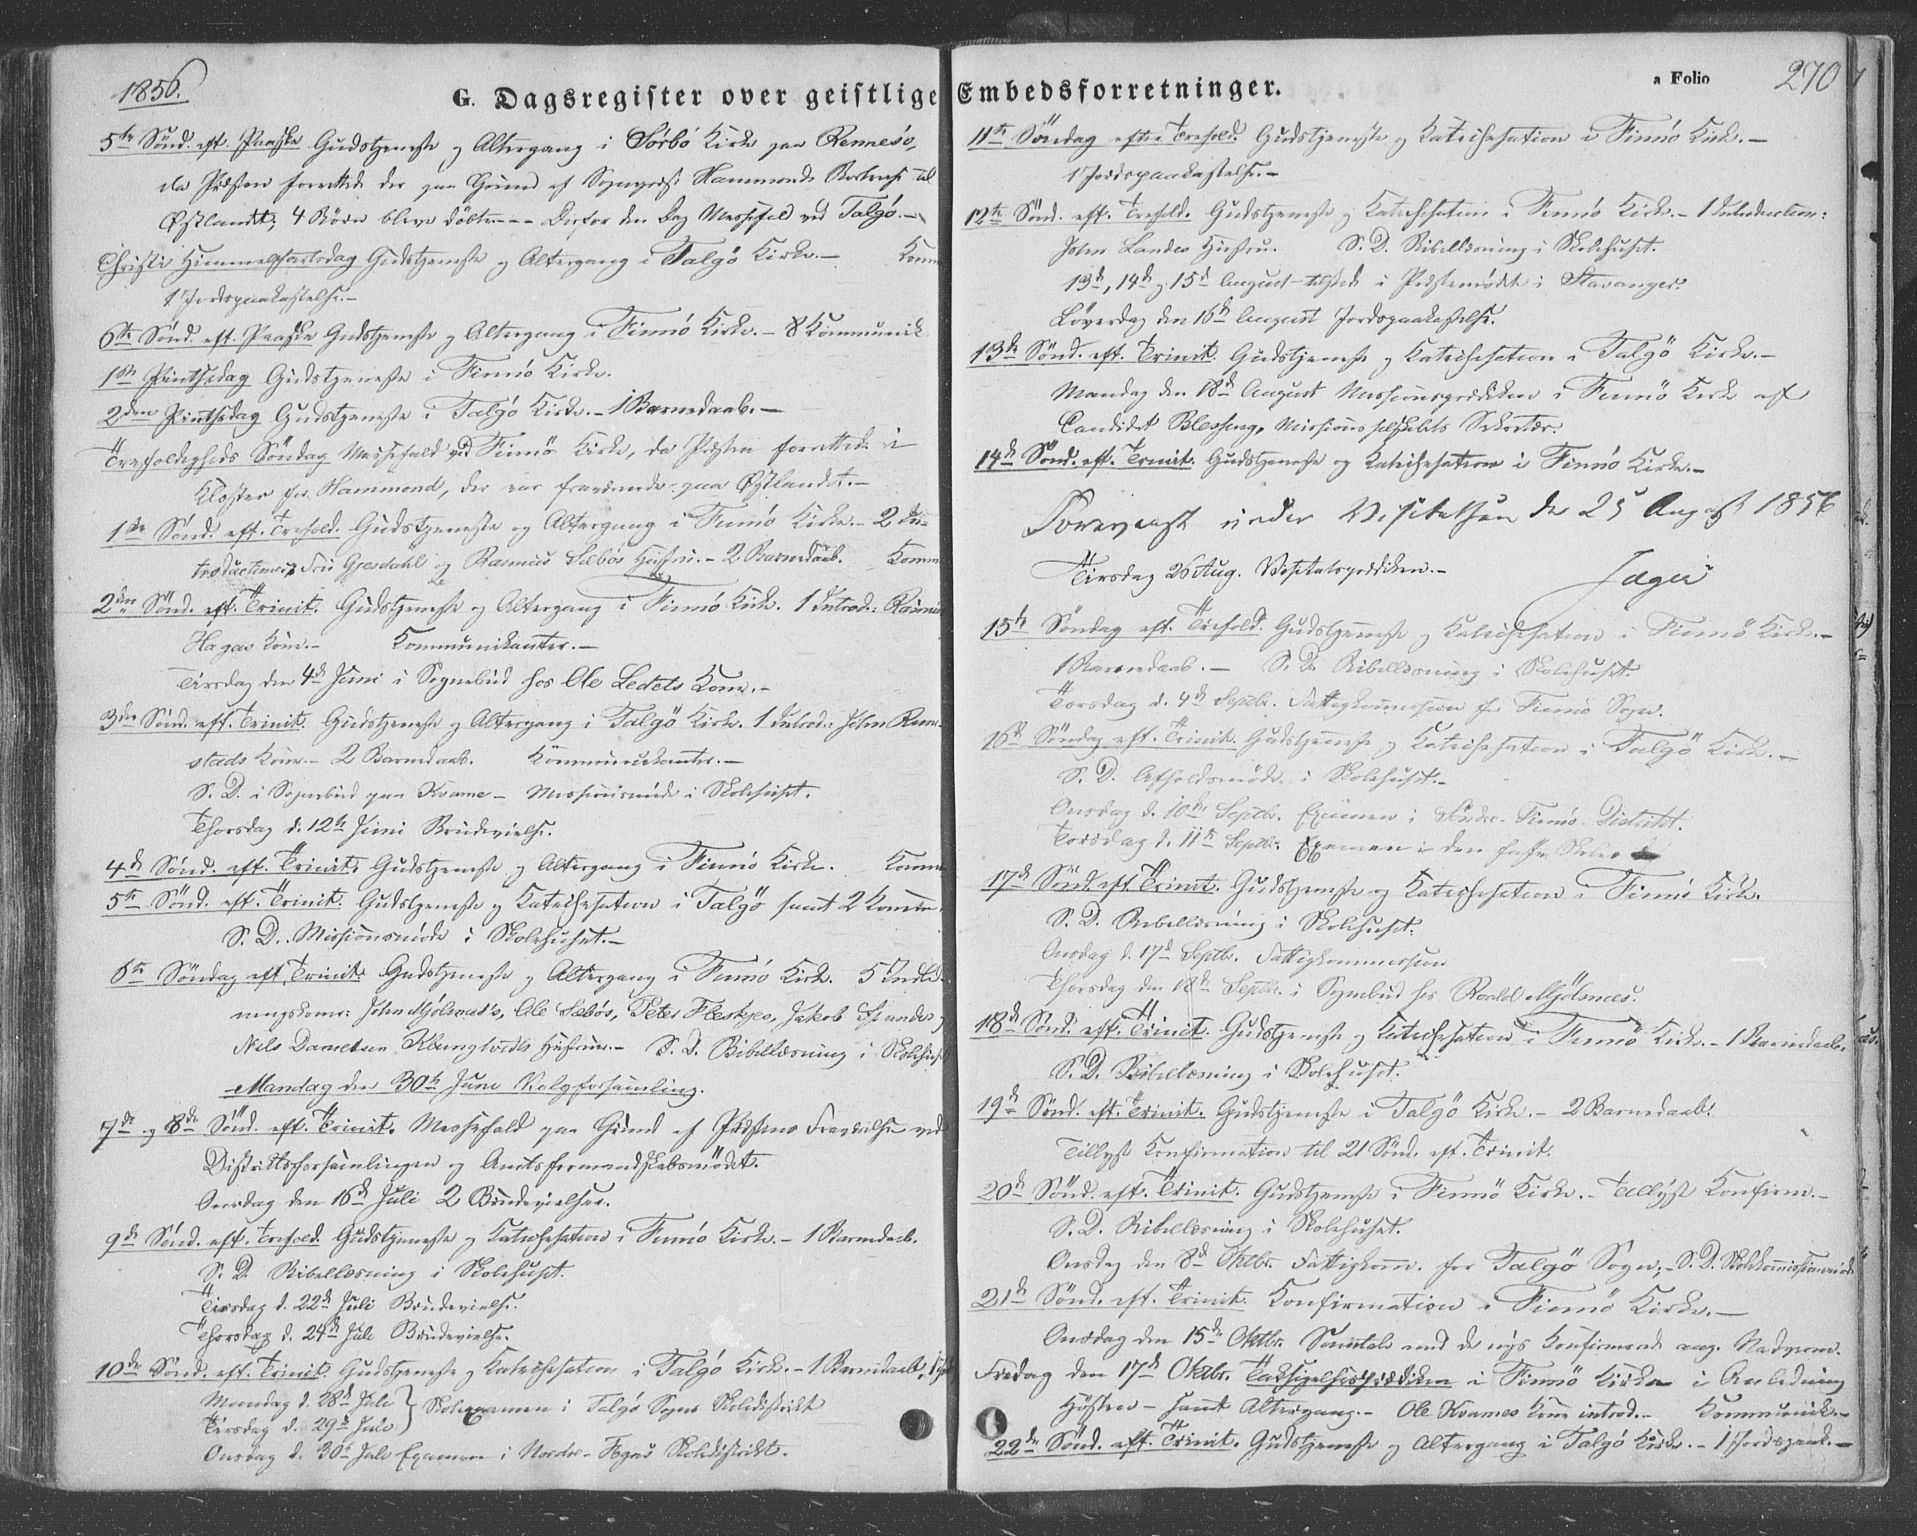 1856.
G. Dagsregister over geistlige Embedsforretninger.
a Folio 270
5te Sönd. eft. Paaske Gudstjeneste og Altergang i Sörbö Kirke paa Rennesö,
da Præsten forrettede der paa Grund af Sognepr. Hammonds Reise til
Østlandet; 4 Börn bleve döbte. -- Derfor den Dag Messefald ved Talgö. -
Christi Himmelfartsdag Gudstjeneste og Altergang i Talgö Kirke. - Komm
1 Jordspaakastelse. -
6te Sönd. eft. Paaske Gudstjeneste og Altergang i Finnö Kirke. - 8 Kommunik
1ste Pintsedag Gudstjeneste i Finnö Kirke.
2den Pintsedag Gudstjeneste i Talgö Kirke. - 1 Barnedaab. -
Trefoldigheds Söndag Messefald ved Finnö Kirke, da Præsten forrettede i
Kloster for Hammond, der var fraværende paa Østlandet. -
1ste Sönd. eft. Trefold. Gudstjeneste og Altergang i Finnö Kirke. - 2 In-
troductioner, Fru Gjesdahl og Rasmus Sæbös Hustru. - 2 Barnedaab. Komm
2den Sönd. eft. Trinit. Gudstjeneste og Altergang i Finnö Kirke. 1 Introd.: Rasmus
Hagas Kone. - Kommunikanter. -
Tirsdag den 4de Juni i Sognebud hos Ole Ledets Kone. -
3die Sönd. eft. Trinit. Gudstjeneste og Altergang i Talgö Kirke. 1 Introd.: John Renn-
stads Kone. - 2 Barnedaab. Kommunikanter. -
S. D. i Sognebud paa Kvame - Missionsmöde i Skolehuset.
Thorsdag d. 12te Juni Brudevielse.
4de Sönd. eft. Trinit. Gudstjeneste og Altergang i Finnö Kirke. Komm
5te Sönd. eft. Trinit. Gudstjeneste og Katechesation i Talgö samt 2 Komm.
S. D. Missionsmöde i Skolehuset. -
6te Söndag eft. Trinit. Gudstjeneste og Altergang i Finnö Kirke. 5 Indled-
ningskoner: John Mjölsnes's, Ole Sæbös, Peter Fleskjes, Jakob
Nils Danielsen Klungtvedts Hustruer. - S. D. Bibellæsning i Skolehuset
Mandag den 30te Juni Valgforsamling.
7de og 8de Sönd. eft. Trinit. Messefald paa Grund af Præstens Fraværelse ved
Distriktsforsamlingen og Amtsformandskabsmödet.
Onsdag den 16de Juli 2 Brudevielser.
9de Sönd. eft. Trefold. Gudstjeneste og Katechesation i Finnö Kirke. - 1 Barnedaab.
S. D. Bibellæsning i Skolehuset.
Tirsdag d. 22de Juli Brudevielse.
Thorsdag d. 24de Juli Brudevielse.
10de Sönd. eft. Trinit. Gudstjeneste og Katechesation i Talgö Kirke. - 1 Barnedaab,
Mandag d. 28de Juli
Tirsdag d. 29de Juli } Skoleexamen i Talgö Sogns Skoledistrikt
Onsdag d. 30te Juli Examen i Nordre-Fognö Skoledistrikt.
11te Söndag efter Trefold. Gudstjeneste og Katechesation i Finnö Kirke. -
1 Jordspaakastelse. -
12te Sönd. eft. Trefold. Gudstjeneste og Katechesation i Finnö Kirke. - 1 Introduction:
John Landes Hustru. S. D. Bibellæsning i Skolehuset.
13de, 14de og 15de August tilstede i Præstemödet i Stavanger.
Löverdag den 16de August Jordspaakastelse.
13de Sönd. eft. Trinit. Gudstjeneste og Katechesation i Talgö Kirke. -
Mandag den 18de August Missionsprædiken i Finnö Kirke af
Candidat Blessing, Missionsselskabets Sekretær.
14de Sönd. eft. Trinit. Gudstjeneste og Katechesation i Finnö Kirke. -
Forevist under Visitatsen den 25 August 1856
Tirsdag 26 Aug. Visitatsprædiken. -
15de Söndag eft. Trefold. Gudstjeneste og Katechesation i Finnö Kirke. -
1 Barnedaab. - S. D. Bibellæsning i Skolehuset.
Torsdag d. 4de Septbr. Fattigkommission for Finnö Sogn.
16de Söndag eft. Trinit. Gudstjeneste og Katechesation i Talgö Kirke. -
S. D. Afholdsmöde i Skolehuset. -
Onsdag d. 10de Septbr. Examen i Söndre-Finnö-Distrikt.
Torsdag d. 11te Septbr. Examen i den faste Skole
17de Sönd. eft. Trinit. Gudstjeneste og Katechesation i Finnö Kirke.
S. D. Bibellæsning i Skolehuset.
Onsdag d. 17de Septbr. Fattigkommission
Thorsdag den 18de Septbr. i Sognebud hos Roald Mjölsnes.
18de Sönd. eft. Trinit. Gudstjeneste og Katechesation i Finnö Kirke. - 1 Barnedaab.
S. D. Bibellæsning i Skolehuset.
19de Sönd. eft. Trinit. Gudstjeneste i Talgö Kirke. - 2 Barnedaab.
Tillyst Konfirmation til 21 Sönd. eft. Trinit.
20de Sönd. eft. Trinit. Gudstjeneste i Finnö Kirke. - Tillyst Konfirm. -
S. D. Bibellæsning i Skolehuset.
Onsdag den 8de Oktbr. Fattigkomm. for Talgö Sogn; - S. D. Skolekommissionsmöde
21de Sönd. eft. Trinit. Konfirmation i Finnö Kirke. -
Onsdag den 15de Oktbr. Samtale med de nys Konfirmerede ang. Nadveren.
Fredag den 17de Oktbr. Taksigelsesprædiken i Finnö Kirke i Anledning
Hösten - samt Altergang. - Ole Kvames Kone introd. - Kommunik. -
22de Sönd. eft. Trinit. Gudstjeneste og Altergang i Talgö Kirke. - 1 Jordspaak. -